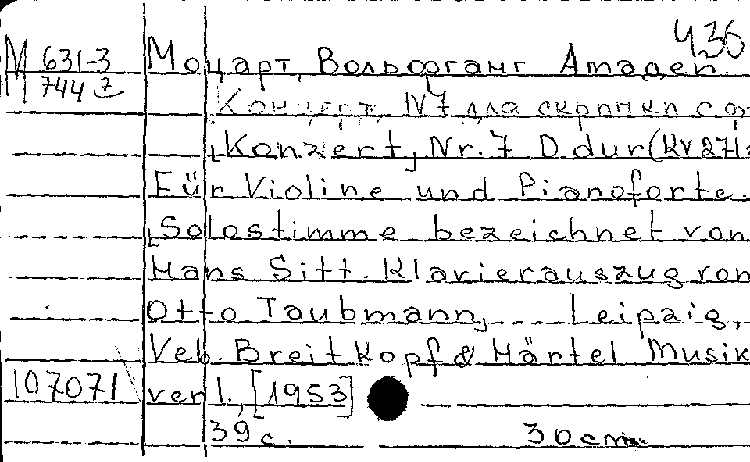 436
М 631-3 Моцарт, Вольфганг Амадей
М 744 7 [Концерт, №7 для скрипки с ф
[Konzert, Nr. 7 D.dur (KV 271a
Für Violine und Pianoforte.
[Solostimme bezeichnet von
Hans Sitt. Klavierauszug von
Otto Taubmann, Leipzig,
Veb Breitkopf & Härtel Musik
107071 verl., [1953]
39 с. 30cm.